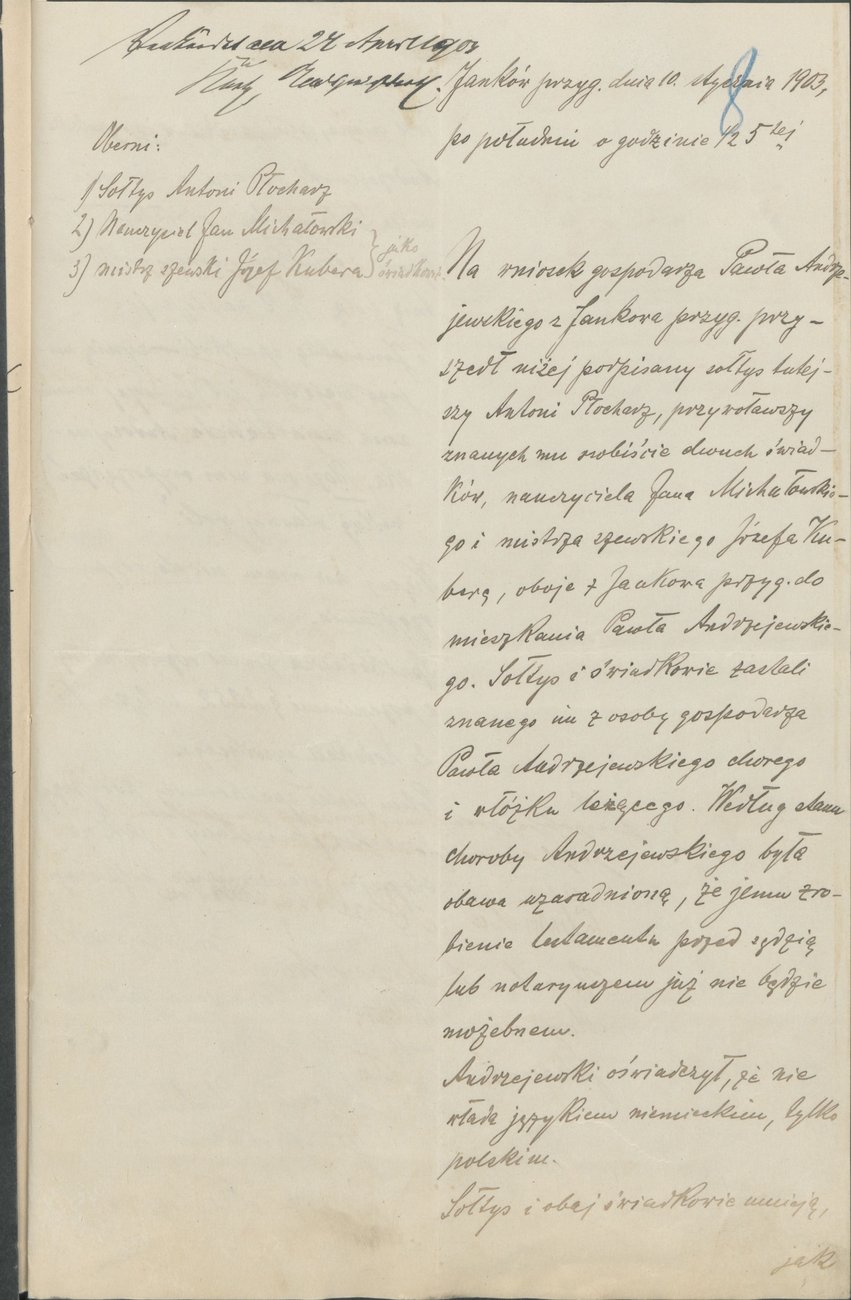 24 April 1903
8
Janków przyg. dnia 10. stycznia 1903,
po południu o godzinie 1/2 5tej
Obecni:
1) Sołtys Antoni Płocharz
2) Nauczyciel Jan Michałowski
3) mistrz szewski Józef Kubera } jako świadkowie.
Na wniosek gospodarza Pawła Andrze-
jewskiego z Jankowa przyg. przy-
szedł niżej podpisany sołtys tutej-
szy Antoni Płocharz, przywoławszy
znanych mu osobiście dwuch świad-
ków, nauczyciela Jana Michałowskie-
go i mistrza szewskiego Józefa Ku-
berę, oboje z Jankowa przyg. do
mieszkania Pawła Andrzejewskie-
go. Sołtys i świadkowie zastali
znanego im z osoby gospodarza
Pawła Andrzejewskiego chorego
i włóżku leżącego. Według stanu
choroby Andrzejewskiego była
obawa uzasadnioną, że jemu zro-
bienie testamentu przed sędzią
lub notaryuszem już nie będzie
możebnem.
Andrzejewski oświadczył, że nie
włada językiem niemieckiem, tylko
polskim.
Sołtys i obaj świadkowie umieją,
jak